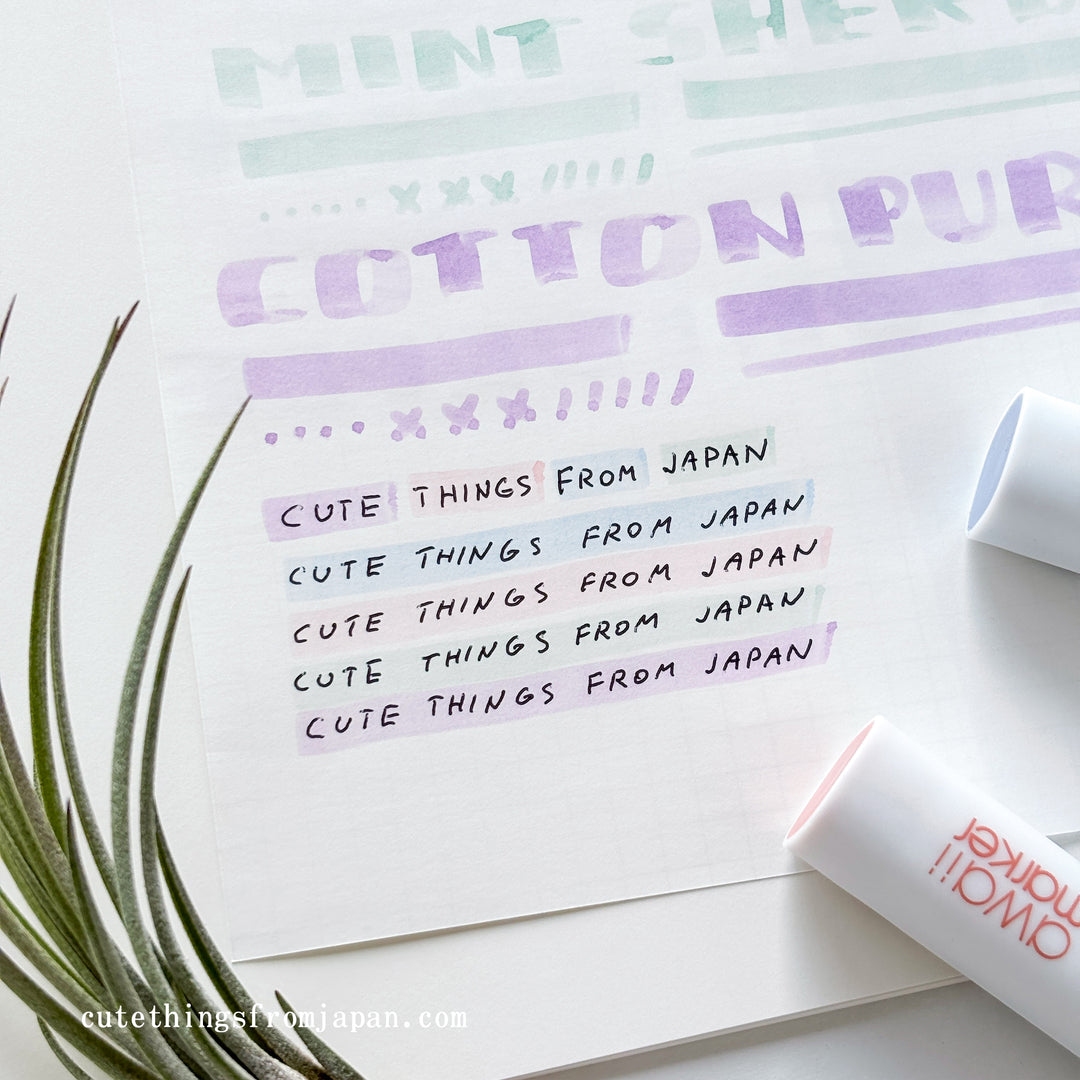 MINT SHER
COTTON PUR
CUTE THINGS FROM JAPAN
CUTE THINGS FROM JAPAN
CUTE THINGS FROM JAPAN
CUTE THINGS FROM JAPAN
CUTE THINGS FROM JAPAN
awaii
marker
cutethingsfromjapan.com